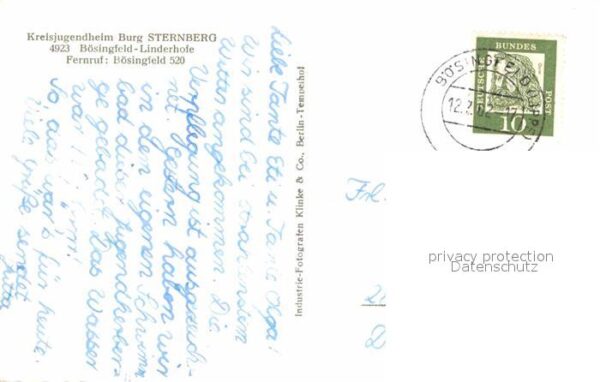 Kreisjugendheim Burg STERNBERG
4923 Bösingfeld-Linderhofe
Fernruf: Bösingfeld 520
Liebe Tante Eti u. Tante Olga!
Wir sind bei strahlendem
Wetter angekommen. Die
Verpflegung ist ausgezeich-
net. Gestern haben wir
in dem eigenen Schwimm
bad dieser Jugendherber-
ge gebadet. Das Wasser
war
So, das wär's für heute.
Viele Grüße sendet
Jutta
Industrie-Fotografen Klinke & Co., Berlin-Tempelhof
Frl.
DEUTSCHE
BUNDES
POST
10
BÖSINGFELD
12.7.62
privacy protection
Datenschutz